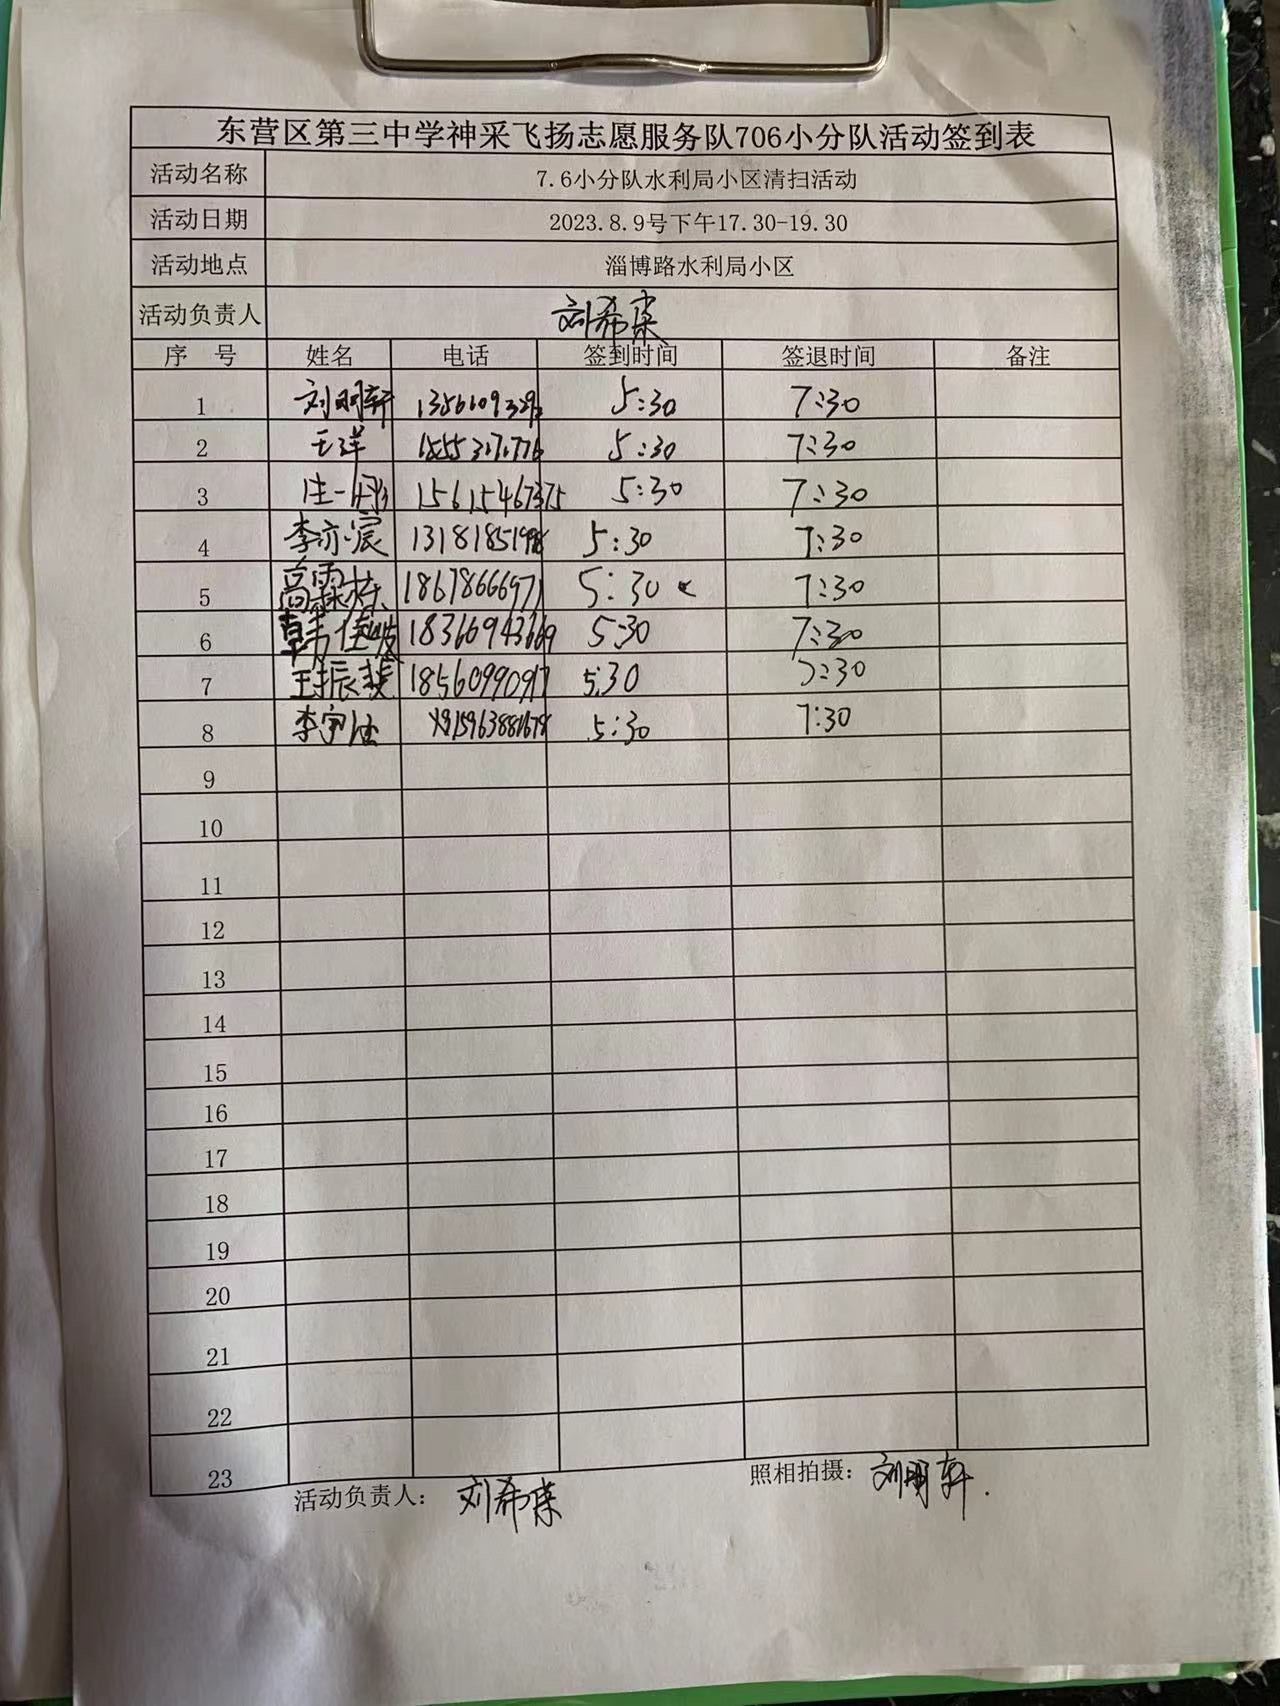 东营区第三中学神采飞扬志愿服务队706小分队活动签到表
活动名称 7.6小分队水利局小区清扫活动
活动日期 2023.8.9号下午17.30-19.30
活动地点 淄博路水利局小区
活动负责人 刘希棠
序 号 姓名 电话 签到时间 签退时间 备注
1 刘明轩 5:30 7:30
2 王洋 5:30 7:30
3 15615467375 5:30 7:30
4 李亦宸 5:30 7:30
5 高霖栋 18678666971 5:30 7:30
6 韩佳峻 18366943669 5:30 7:30
7 王振斐 18560990917 5:30 7:30
8 5:30 7:30
9
10
11
12
13
14
15
16
17
18
19
20
21
22
23
活动负责人: 刘希棠 照相拍摄: 刘明轩.